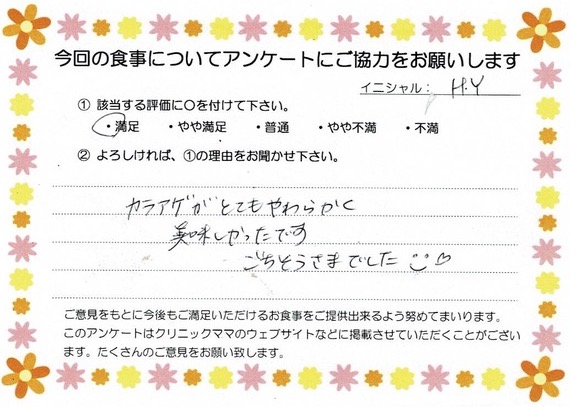 今回の食事についてアンケートにご協力をお願いします
イニシャル： H.Y
① 該当する評価に○を付けて下さい。
・満足 ・やや満足 ・普通 ・やや不満 ・不満
② よろしければ、①の理由をお聞かせ下さい。
カラアゲがとてもやわらかく
美味しかったです
ごちそうさまでした
ご意見をもとに今後もご満足いただけるお食事をご提供出来るよう努めてまいります。
このアンケートはクリニックママのウェブサイトなどに掲載させていただくことがござい
ます。たくさんのご意見をお願い致します。